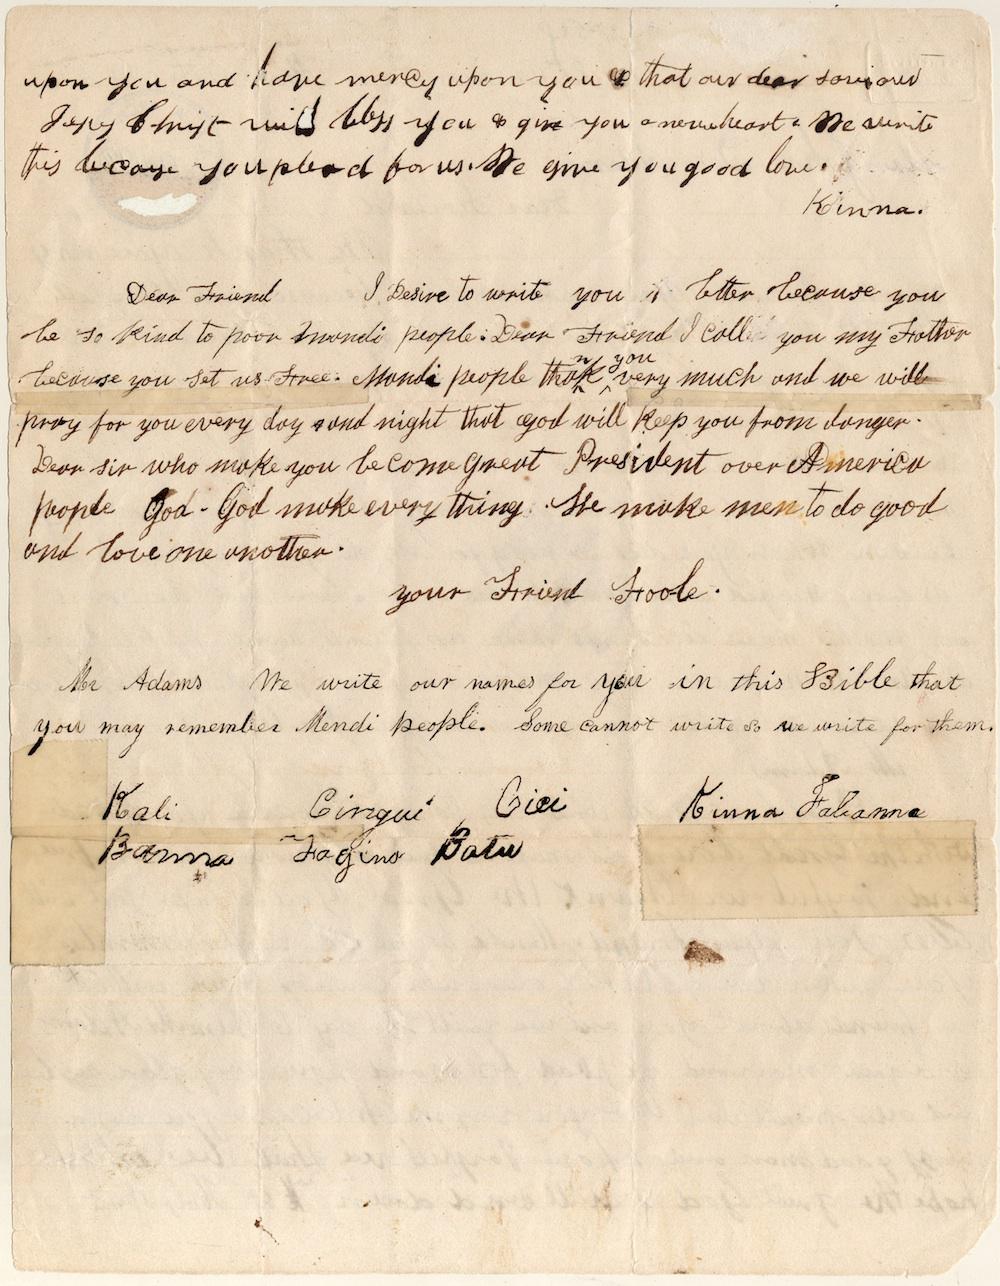 upon you and have mercy upon you & that our dear saviour
Jesus Christ will bless you & give you a new heart. We write
this because you plead for us. We give you good love.
Kinna.
Dear Friend I Desire to write you a letter because you
be so kind to poor mendi people. Dear Friend I call you my Father
because you set us Free. Mendi people thank you very much and we will
pray for you every day and night that god will keep you from danger.
Dear sir who make you become great President over America
people God - God make everything. He make men to do good
and love one another.
your Friend Foole.
Mr Adams We write our names for you in this Bible that
you may remember Mendi people. Some cannot write so we write for them.
Kali Cinqui Cici Kinna Fabanna
Banna Fagino Batu